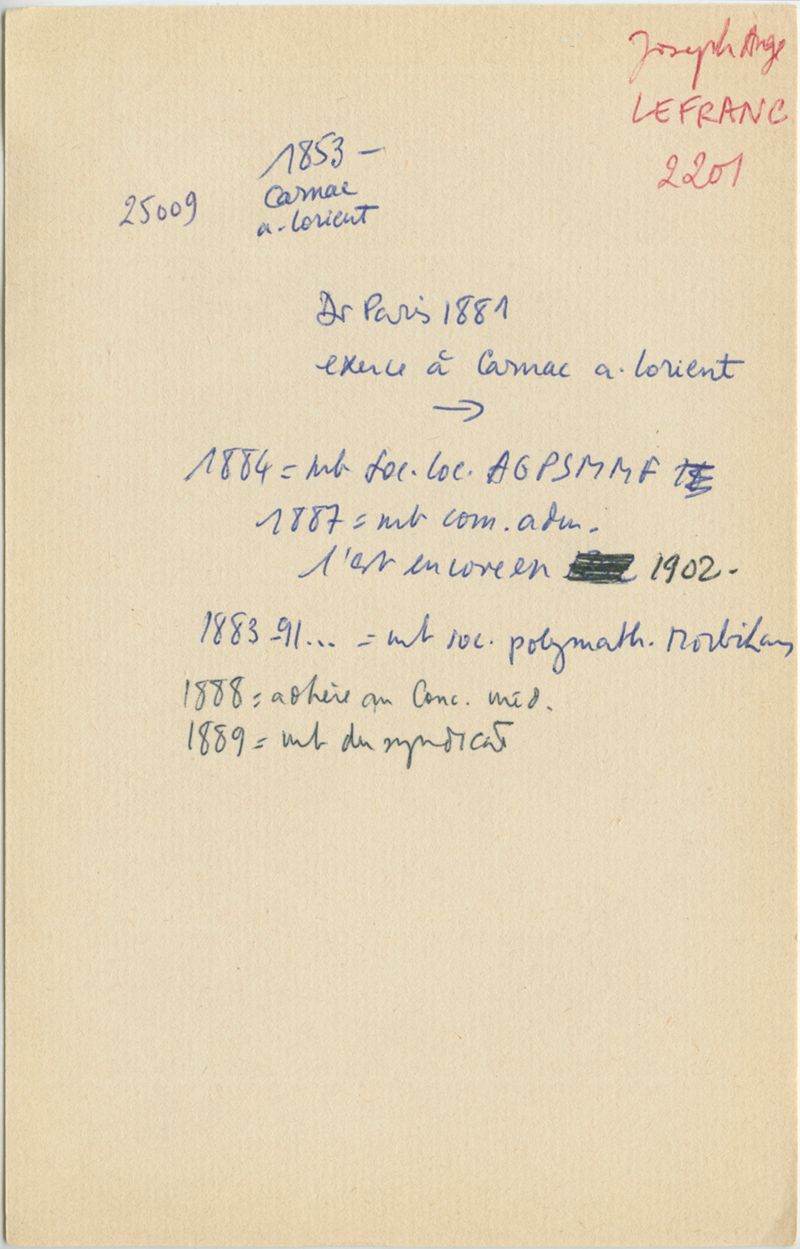 Joseph Ange
LEFRANC
2201
1853 –
Carnac
a. Lorient
25009
Dr Paris 1881
exerce à Carnac a. Lorient
→
1884 = mb Soc. loc. AGPSMMF
1887 = mb com. adm.
l'est encore en 1902.
1883-91... = mb soc. polymath. Morbihan
1888 = adhère au Conc. méd.
1889 = mb du syndicat